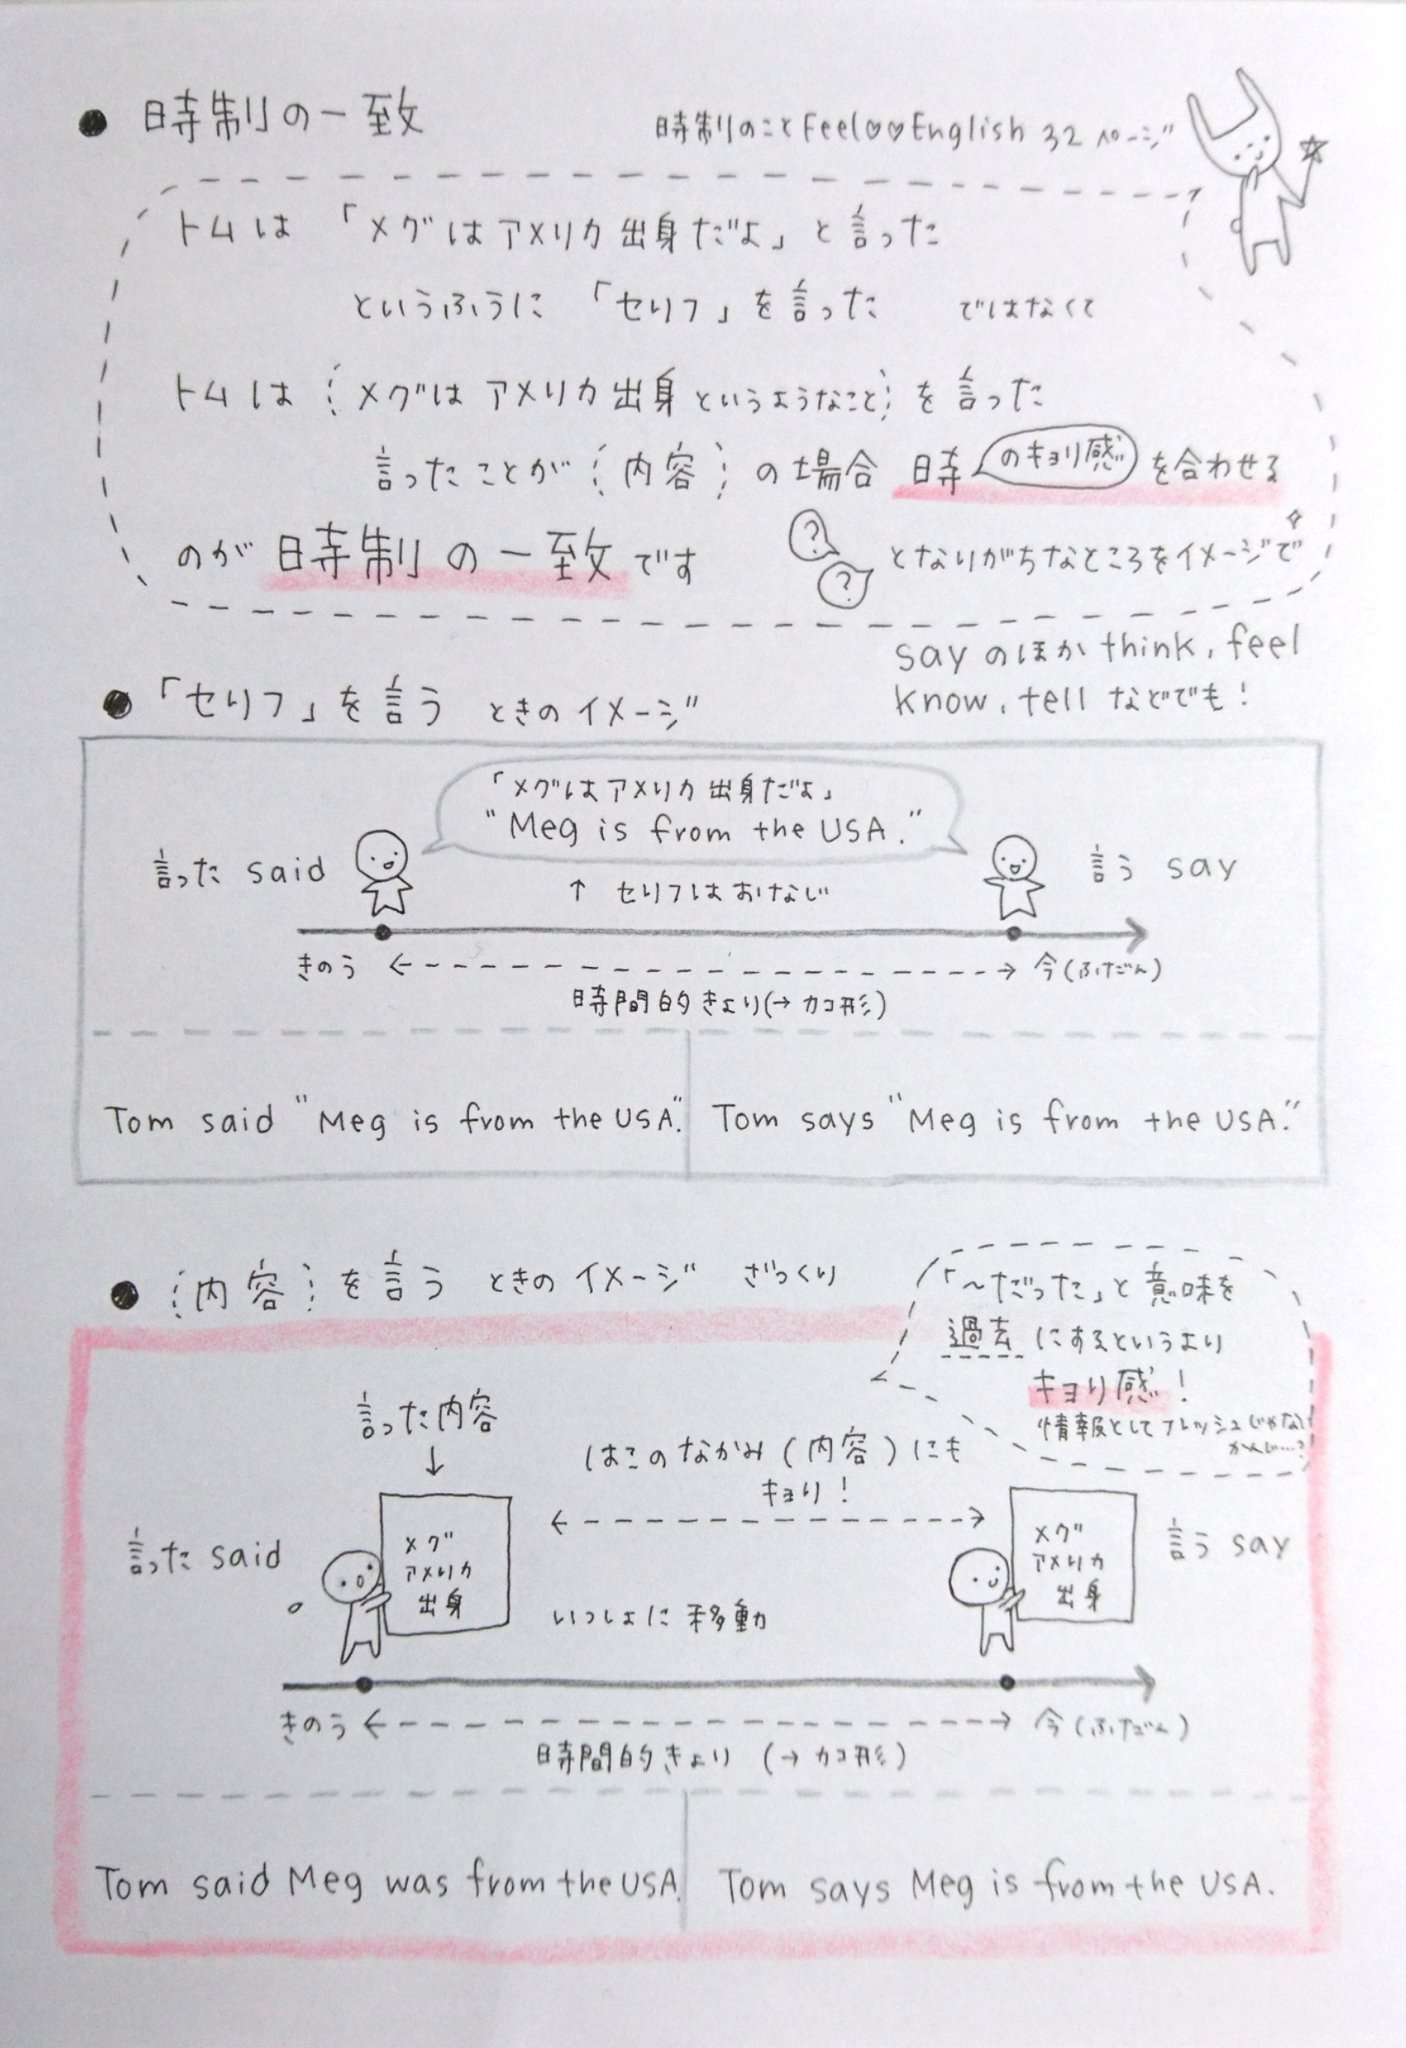 ● 時制の一致
時制のこと Feel♡♡English 32ページ
トムは 「メグはアメリカ出身だよ」と言った
というふうに 「セリフ」を言った ではなくて
トムは メグはアメリカ出身というようなこと を言った
言ったことが 内容 の場合 時のキョリ感を合わせる
のが 時制の一致です
? ? となりがちなところをイメージで
say のほか think, feel
know, tell などでも!
● 「セリフ」を言う ときのイメージ
「メグはアメリカ出身だよ」
"Meg is from the USA."
言った said
言う say
↑ セリフはおなじ
きのう ←------→ 今(ふだん)
時間的きょり(→ カコ形)
Tom said "Meg is from the USA".
Tom says "Meg is from the USA."
● 内容 を言う ときのイメージ ざっくり
「～だった」と意味を
過去にするというより
キョリ感!
情報としてフレッシュじゃない
かんじ…?
言った内容
↓
はこのなかみ(内容)にも
キョリ!
言った said
メグ
アメリカ
出身
いっしょに移動
メグ
アメリカ
出身
言う say
きのう ←------→ 今(ふだん)
時間的きょり (→ カコ形)
Tom said Meg was from the USA.
Tom says Meg is from the USA.